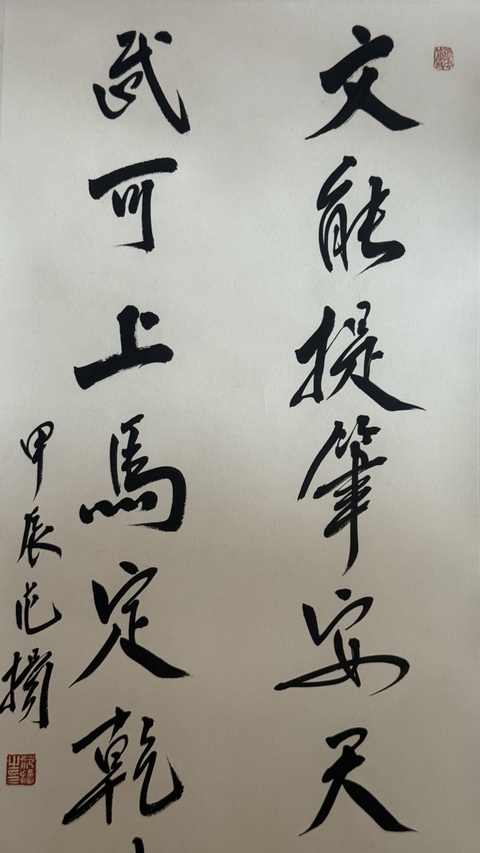 文能提筆安天
武可上馬定乾
甲辰